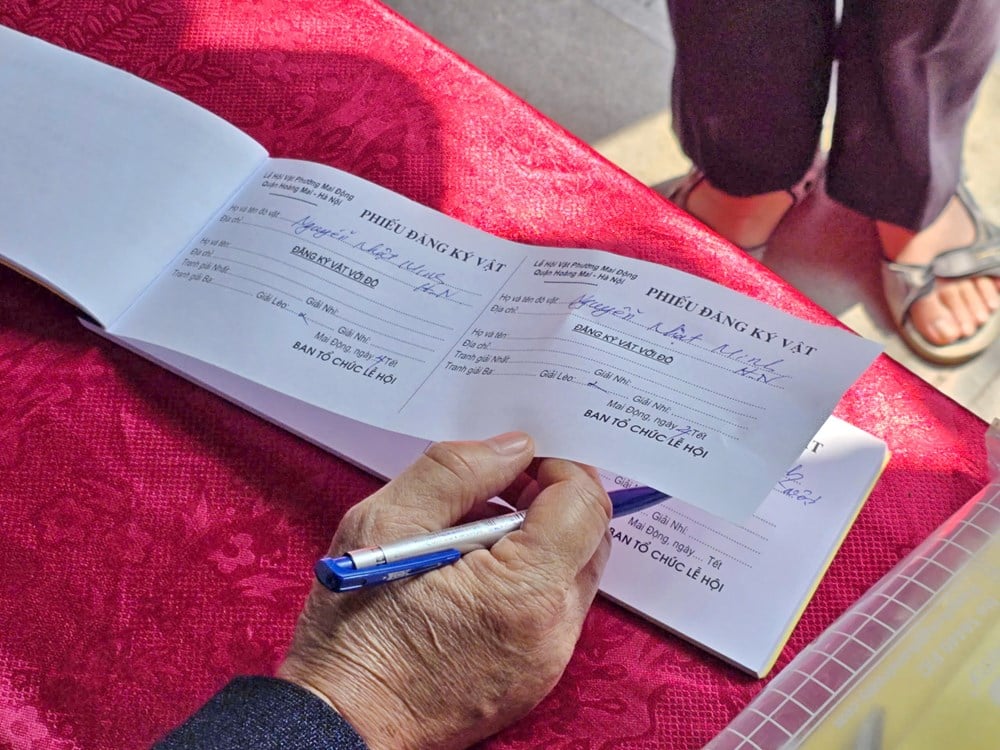 Lễ Hội Vật Phường Mai Động
Quận Hoàng Mai - Hà Nội
PHIẾU ĐĂNG KÝ VẬT
Họ và tên đô vật: Nguyễn Nhật Minh
Địa chỉ: H-N
ĐĂNG KÝ VẬT VỚI ĐÔ
Họ và tên:
Địa chỉ:
Tranh giải Nhất: Giải Nhì:
Tranh giải Ba: Giải Lèo: Giải Nhì:
Mai Động, ngày Tết
BAN TỔ CHỨC LỄ HỘI
Lễ Hội Vật Phường Mai Động
Quận Hoàng Mai - Hà Nội
PHIẾU ĐĂNG KÝ VẬT
Họ và tên đô vật: Nguyễn Nhật Minh
Địa chỉ: H-N
ĐĂNG KÝ VẬT VỚI ĐÔ
Họ và tên:
Địa chỉ:
Tranh giải Nhất: Giải Nhì:
Tranh giải Ba: Giải Lèo: Giải Nhì:
Mai Động, ngày Tết
BAN TỔ CHỨC LỄ HỘI
Giải Nhì:
Mai Động, ngày Tết
BAN TỔ CHỨC LỄ HỘI